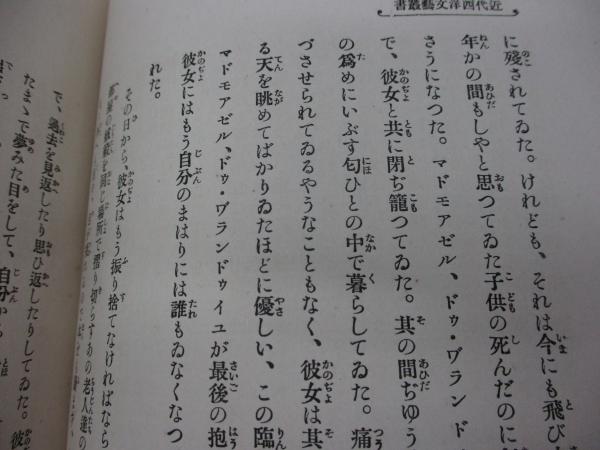 近代西洋文藝叢書
に殘されてゐた。けれども、それは今にも飛び
年かの間もしやと思つてゐた子供の死んだのに
さうになつた。マドモアゼル、ドゥ・ヷランド
で、彼女と共に閉ぢ籠つてゐた。其の間ぢゆう
の爲めにいぶす匂ひとの中で暮らしてゐた。痛
づさせられてゐるやうなこともなく、彼女は其
る天を眺めてばかりゐたほどに優しい、この臨
マドモアゼル、ドゥ・ヷランドゥイユが最後の抱
彼女にはもう自分のまはりには誰もゐなくなつ
れた。
その日から、彼女はもう振り捨てなければなら
の絨毯を同じ場所で擦り切らすあの老人達の
で、過去を見返したり思ひ返したりしてゐた。彼
たまゝで夢みた目をして、自分から